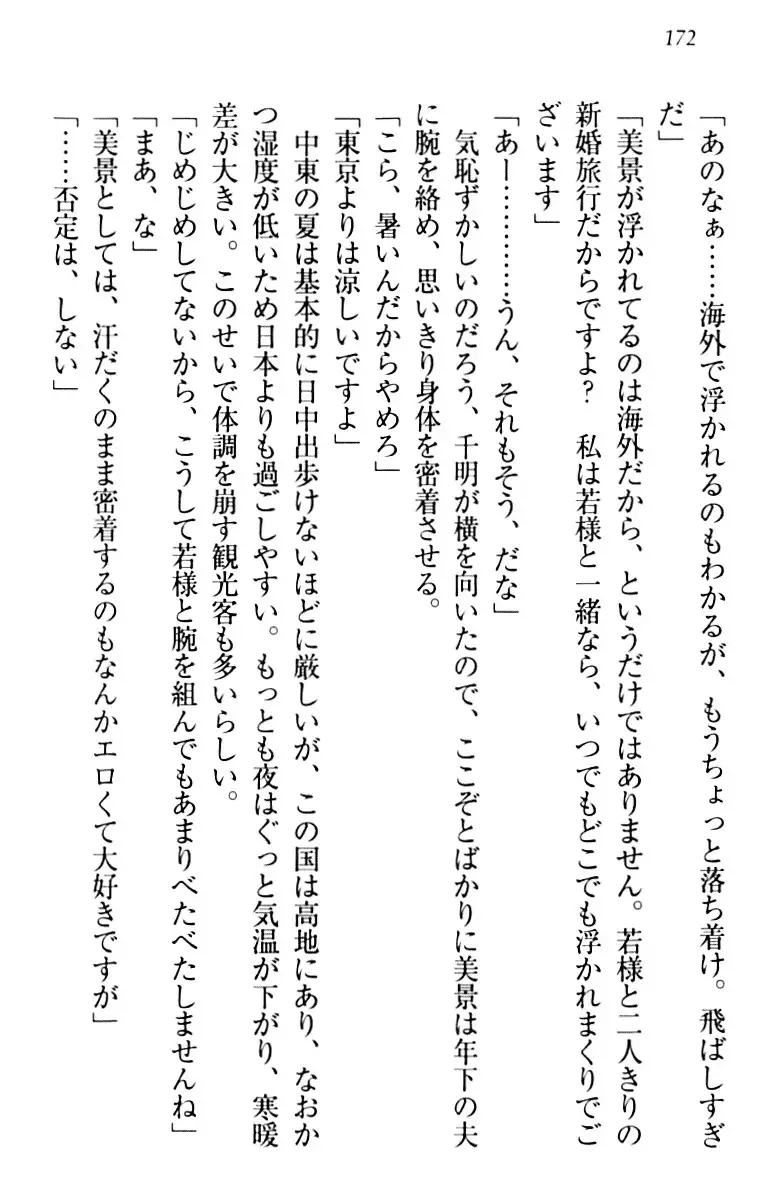 172
「あのなぁ……海外で浮かれるのもわかるが、もうちょっと落ち着け。飛ばしすぎ
だ」
「美景が浮かれてるのは海外だから、というだけではありません。若様と二人きりの
新婚旅行だからですよ？　私は若様と一緒なら、いつでもどこでも浮かれまくりでご
ざいます」
「あー…………うん、それもそう、だな」
　気恥ずかしいのだろう、千明が横を向いたので、ここぞとばかりに美景は年下の夫
に腕を絡め、思いきり身体を密着させる。
「こら、暑いんだからやめろ」
「東京よりは涼しいですよ」
　中東の夏は基本的に日中出歩けないほどに厳しいが、この国は高地にあり、なおか
つ湿度が低いため日本よりも過ごしやすい。もっとも夜はぐっと気温が下がり、寒暖
差が大きい。このせいで体調を崩す観光客も多いらしい。
「じめじめしてないから、こうして若様と腕を組んでもあまりべたべたしませんね」
「まあ、な」
「美景としては、汗だくのまま密着するのもなんかエロくて大好きですが」
「……否定は、しない」